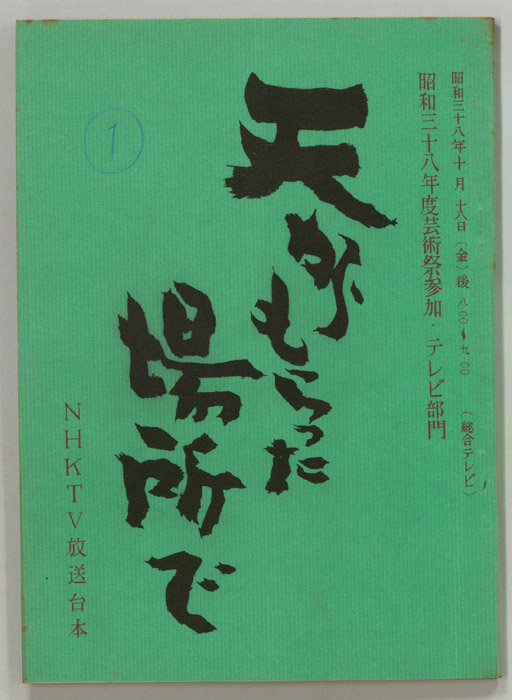 昭和三十八年十月十八日(金)後八・〇〇〜九・〇〇(総合テレビ)
昭和三十八年度芸術祭参加・テレビ部門
天からもらった
場所で
1
NHKTV放送台本